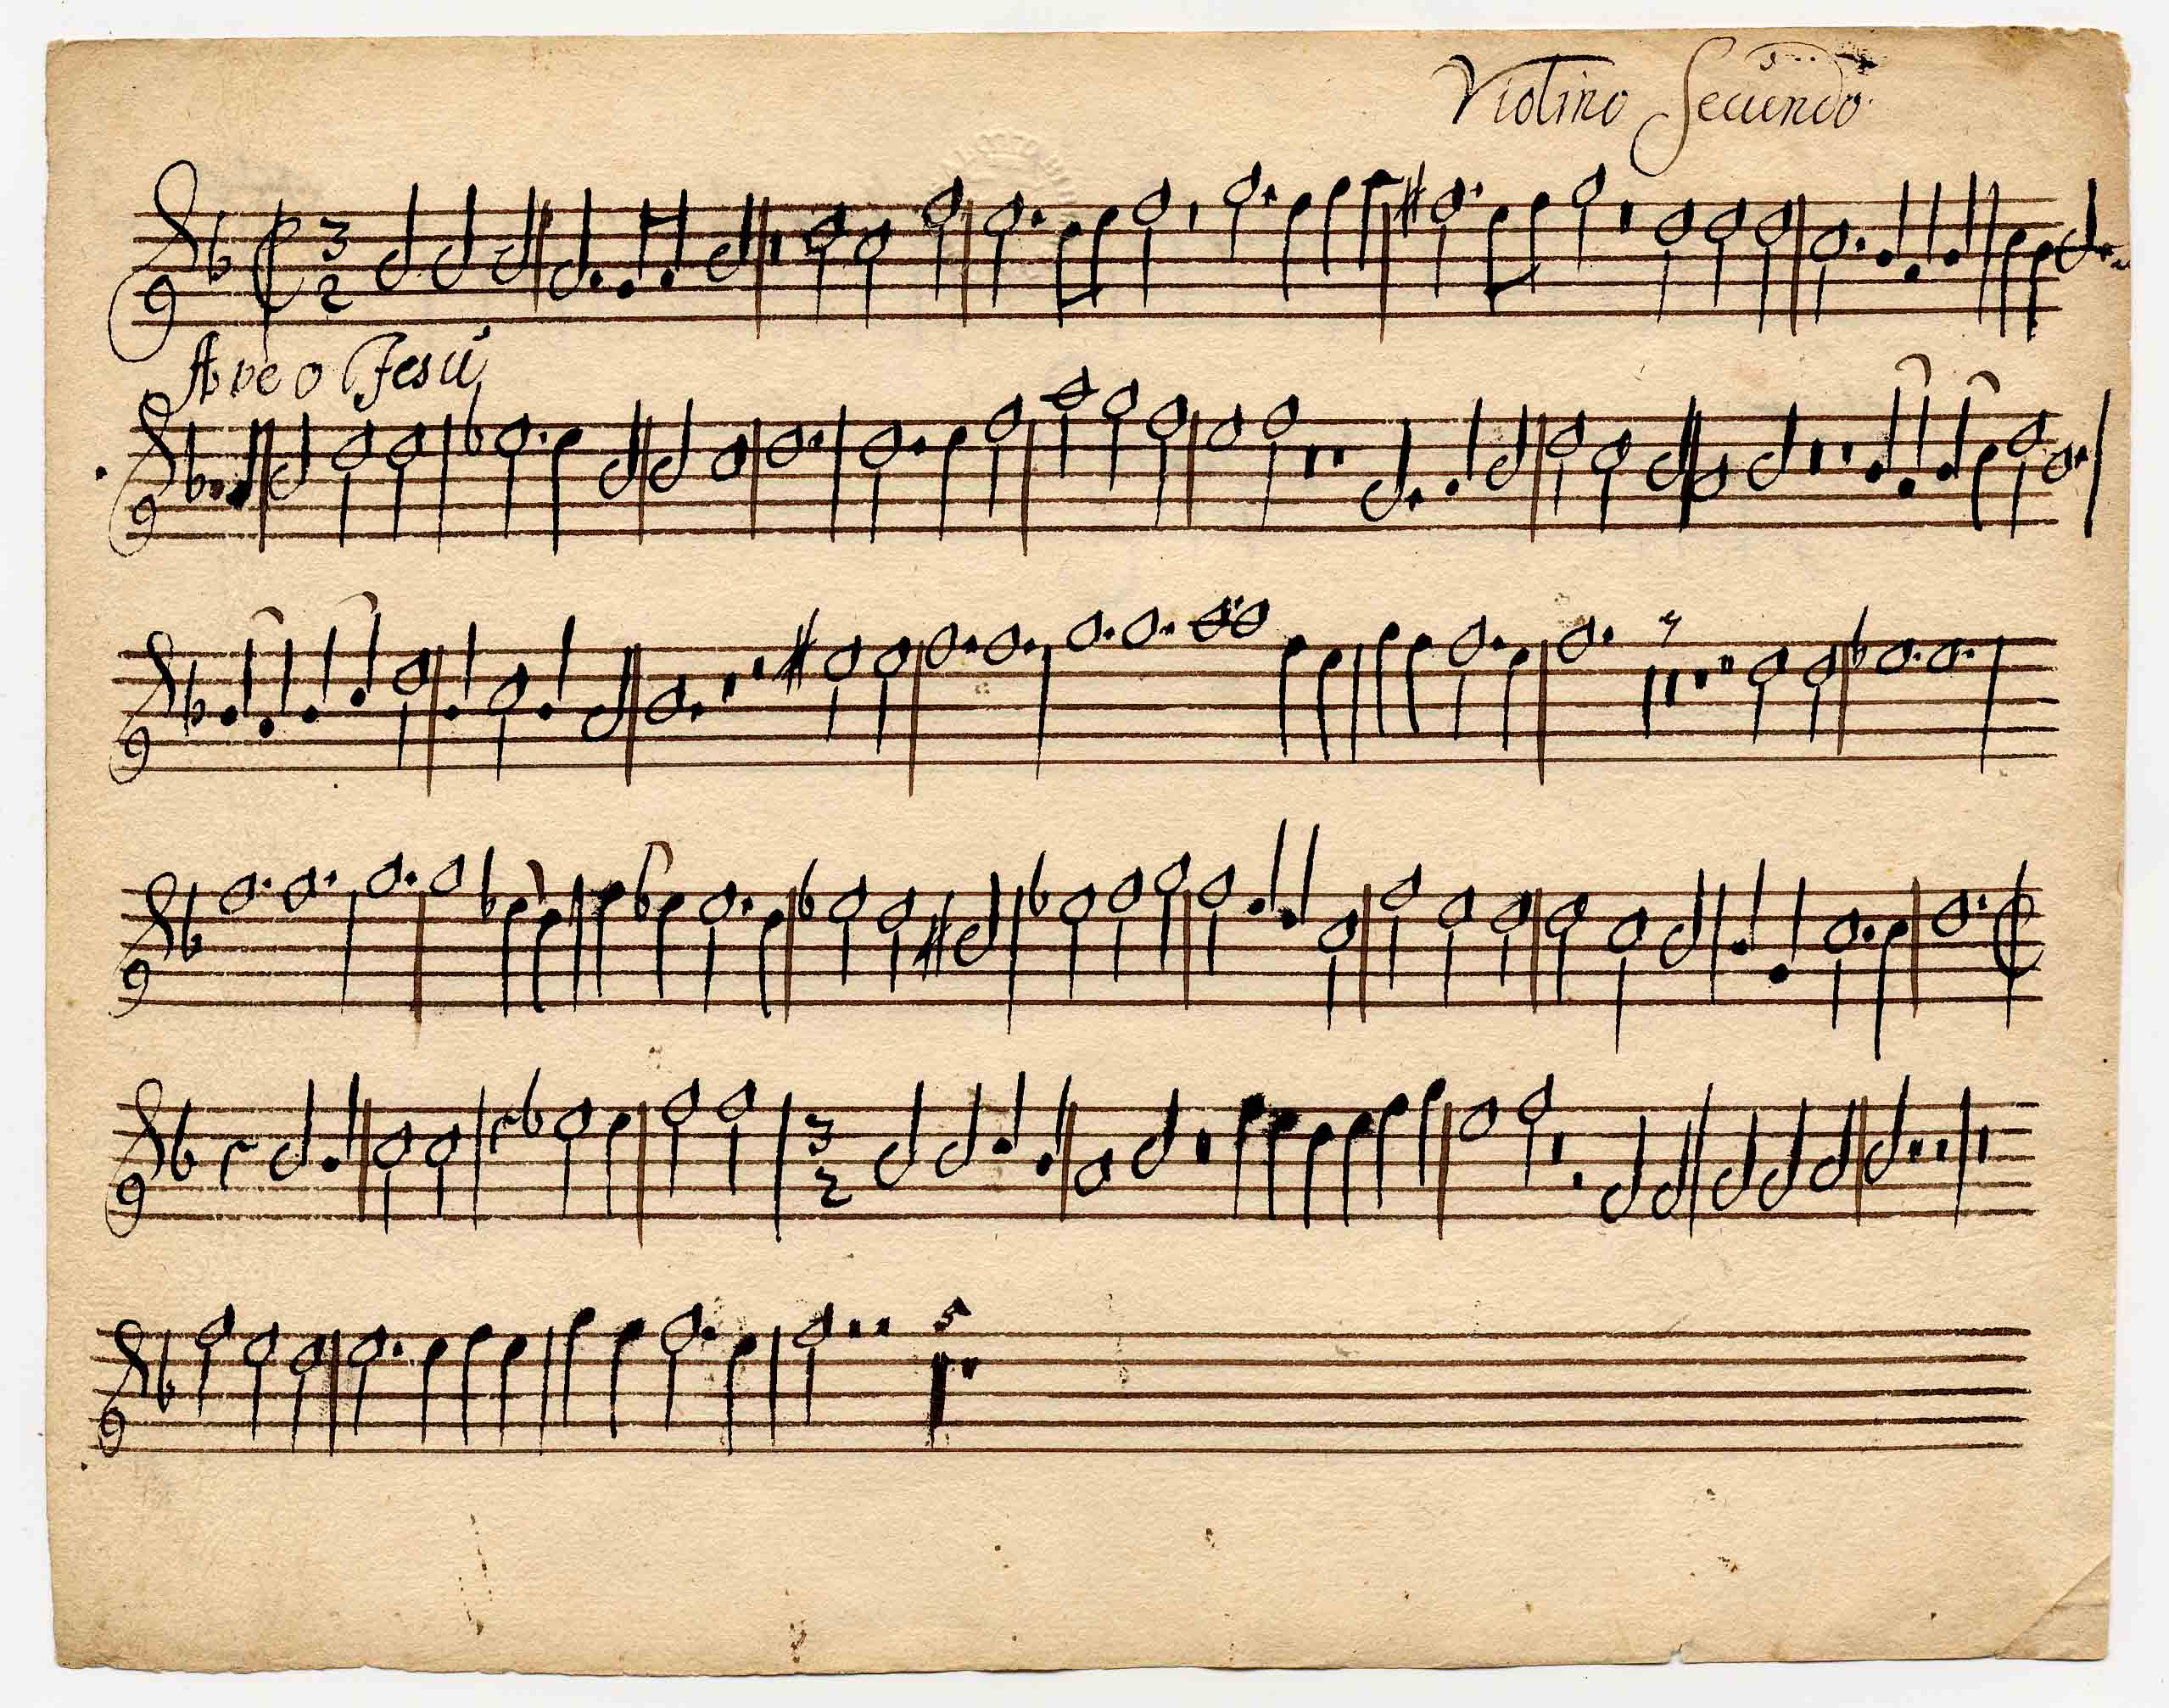 Violino Secundo
3
2
Ave o Jesu
3
2